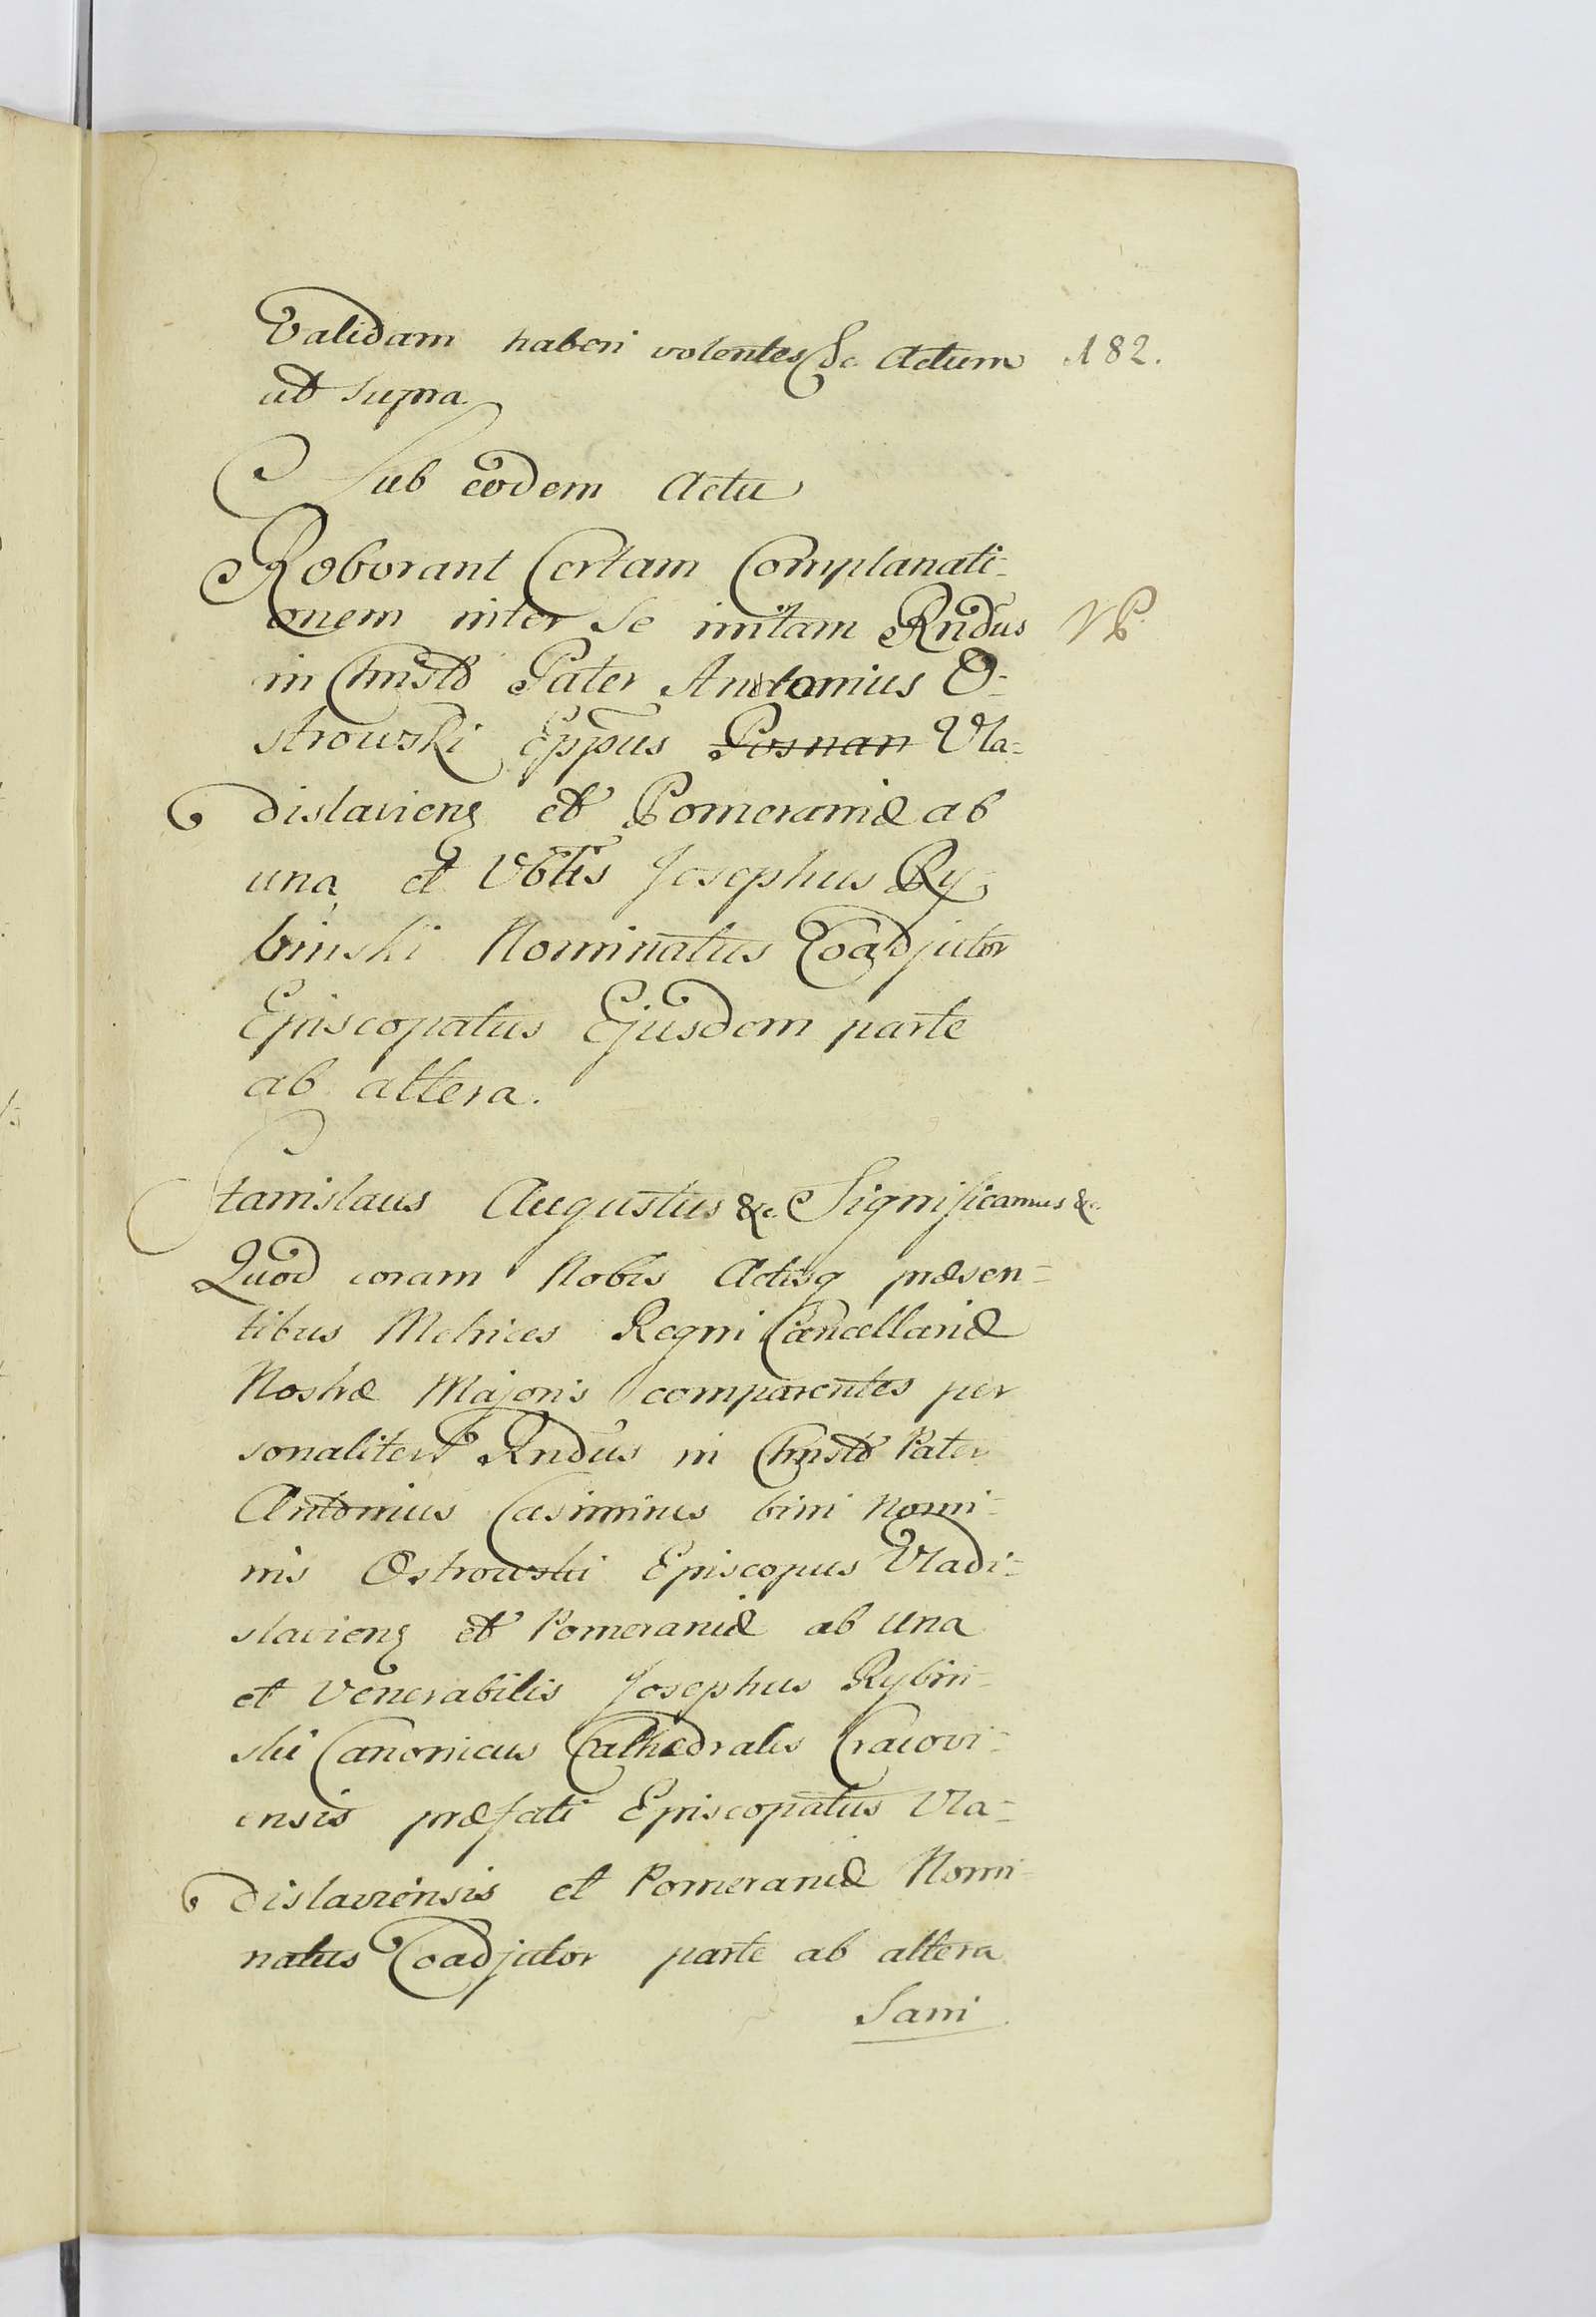 Validam haberi volentes &c. Actum 182.
ut supra.
Sub eodem Actu
Roborant Certam Complanati-
onem inter se initam Rndus
in Christo Pater Antonius O-
strowski Eppus Posnan Vla-
dislavien et Pomeraniæ ab
una, et Vblis Josephus Ry-
binski Nominatus Coadjutor
Episcopatus Ejusdem parte
ab altera.
Stanislaus Augustus &c. Significamus &c.
Quod coram Nobis Actisq præsen-
tibus Metrices Regni Cancellariæ
Nostræ Majoris comparentes per
sonaliter Rndus in Christo Pater
Antonius Casimirus bini Nomi-
nis Ostrowski Episcopus Vladi-
slavien et Pomeraniæ ab una
et Venerabilis Josephus Rybin-
ski Canonicus Cathedralis Cracovi-
ensis præfati Episcopatus Vla-
dislaviensis et Pomeraniæ Nomi-
natus Coadjutor parte ab altera
Sani